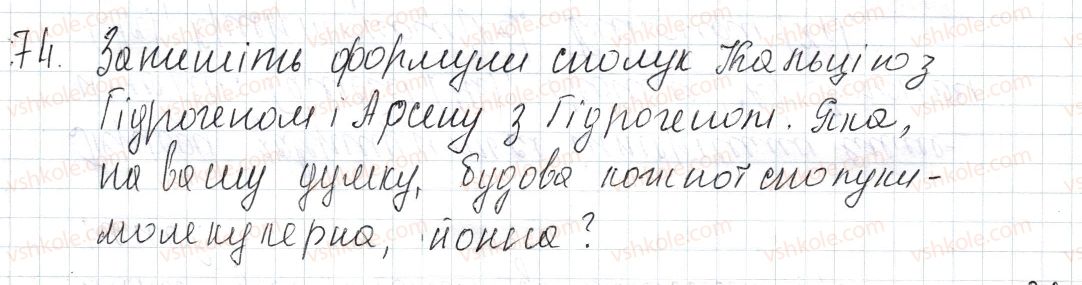 74. Запишіть формули сполук Кальцію з
Гідрогеном і Арсену з Гідрогеном. Яка,
на вашу думку, будова кожної сполуки -
молекулярна, йонна?